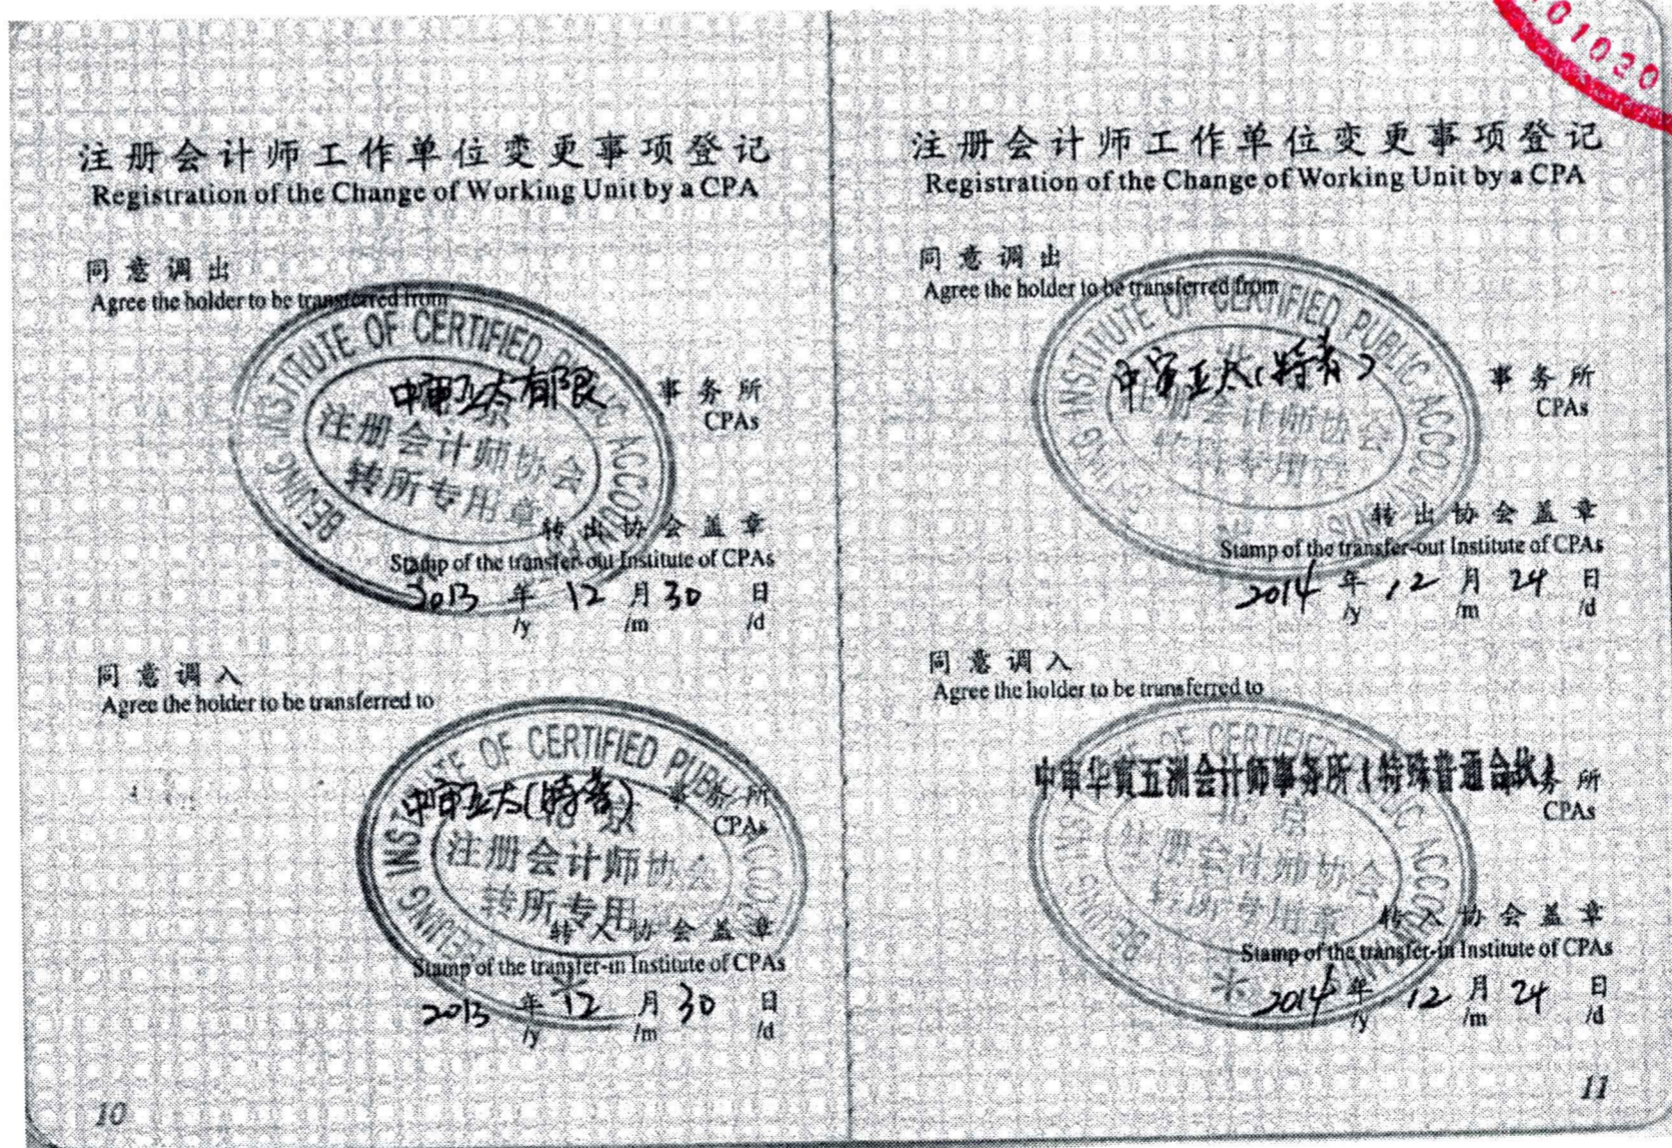 注册会计师工作单位变更事项登记
Registration of the Change of Working Unit by a CPA
同意调出
Agree the holder to be transferred from
BEIJING INSTITUTE OF CERTIFIED PUBLIC ACCOUNTANTS
中审亚太有限
事务所
CPAs
北京
注册会计师协会
转所专用章
转出协会盖章
Stamp of the transfer-out Institute of CPAs
2013 年 12 月 30 日
/y /m /d
同意调入
Agree the holder to be transferred to
BEIJING INSTITUTE OF CERTIFIED PUBLIC ACCOUNTANTS
中审亚太(特普)
事务所
CPAs
北京
注册会计师协会
转所专用章
转入协会盖章
Stamp of the transfer-in Institute of CPAs
2013 年 12 月 30 日
/y /m /d
10
01020
注册会计师工作单位变更事项登记
Registration of the Change of Working Unit by a CPA
同意调出
Agree the holder to be transferred from
BEIJING INSTITUTE OF CERTIFIED PUBLIC ACCOUNTANTS
中审亚太(特普)
事务所
CPAs
北京
注册会计师协会
转所专用章
转出协会盖章
Stamp of the transfer-out Institute of CPAs
2014 年 12 月 24 日
/y /m /d
同意调入
Agree the holder to be transferred to
BEIJING INSTITUTE OF CERTIFIED PUBLIC ACCOUNTANTS
中审华寅五洲会计师事务所(特殊普通合伙)
事务所
CPAs
北京
注册会计师协会
转所专用章
转入协会盖章
Stamp of the transfer-in Institute of CPAs
2014 年 12 月 24 日
/y /m /d
11